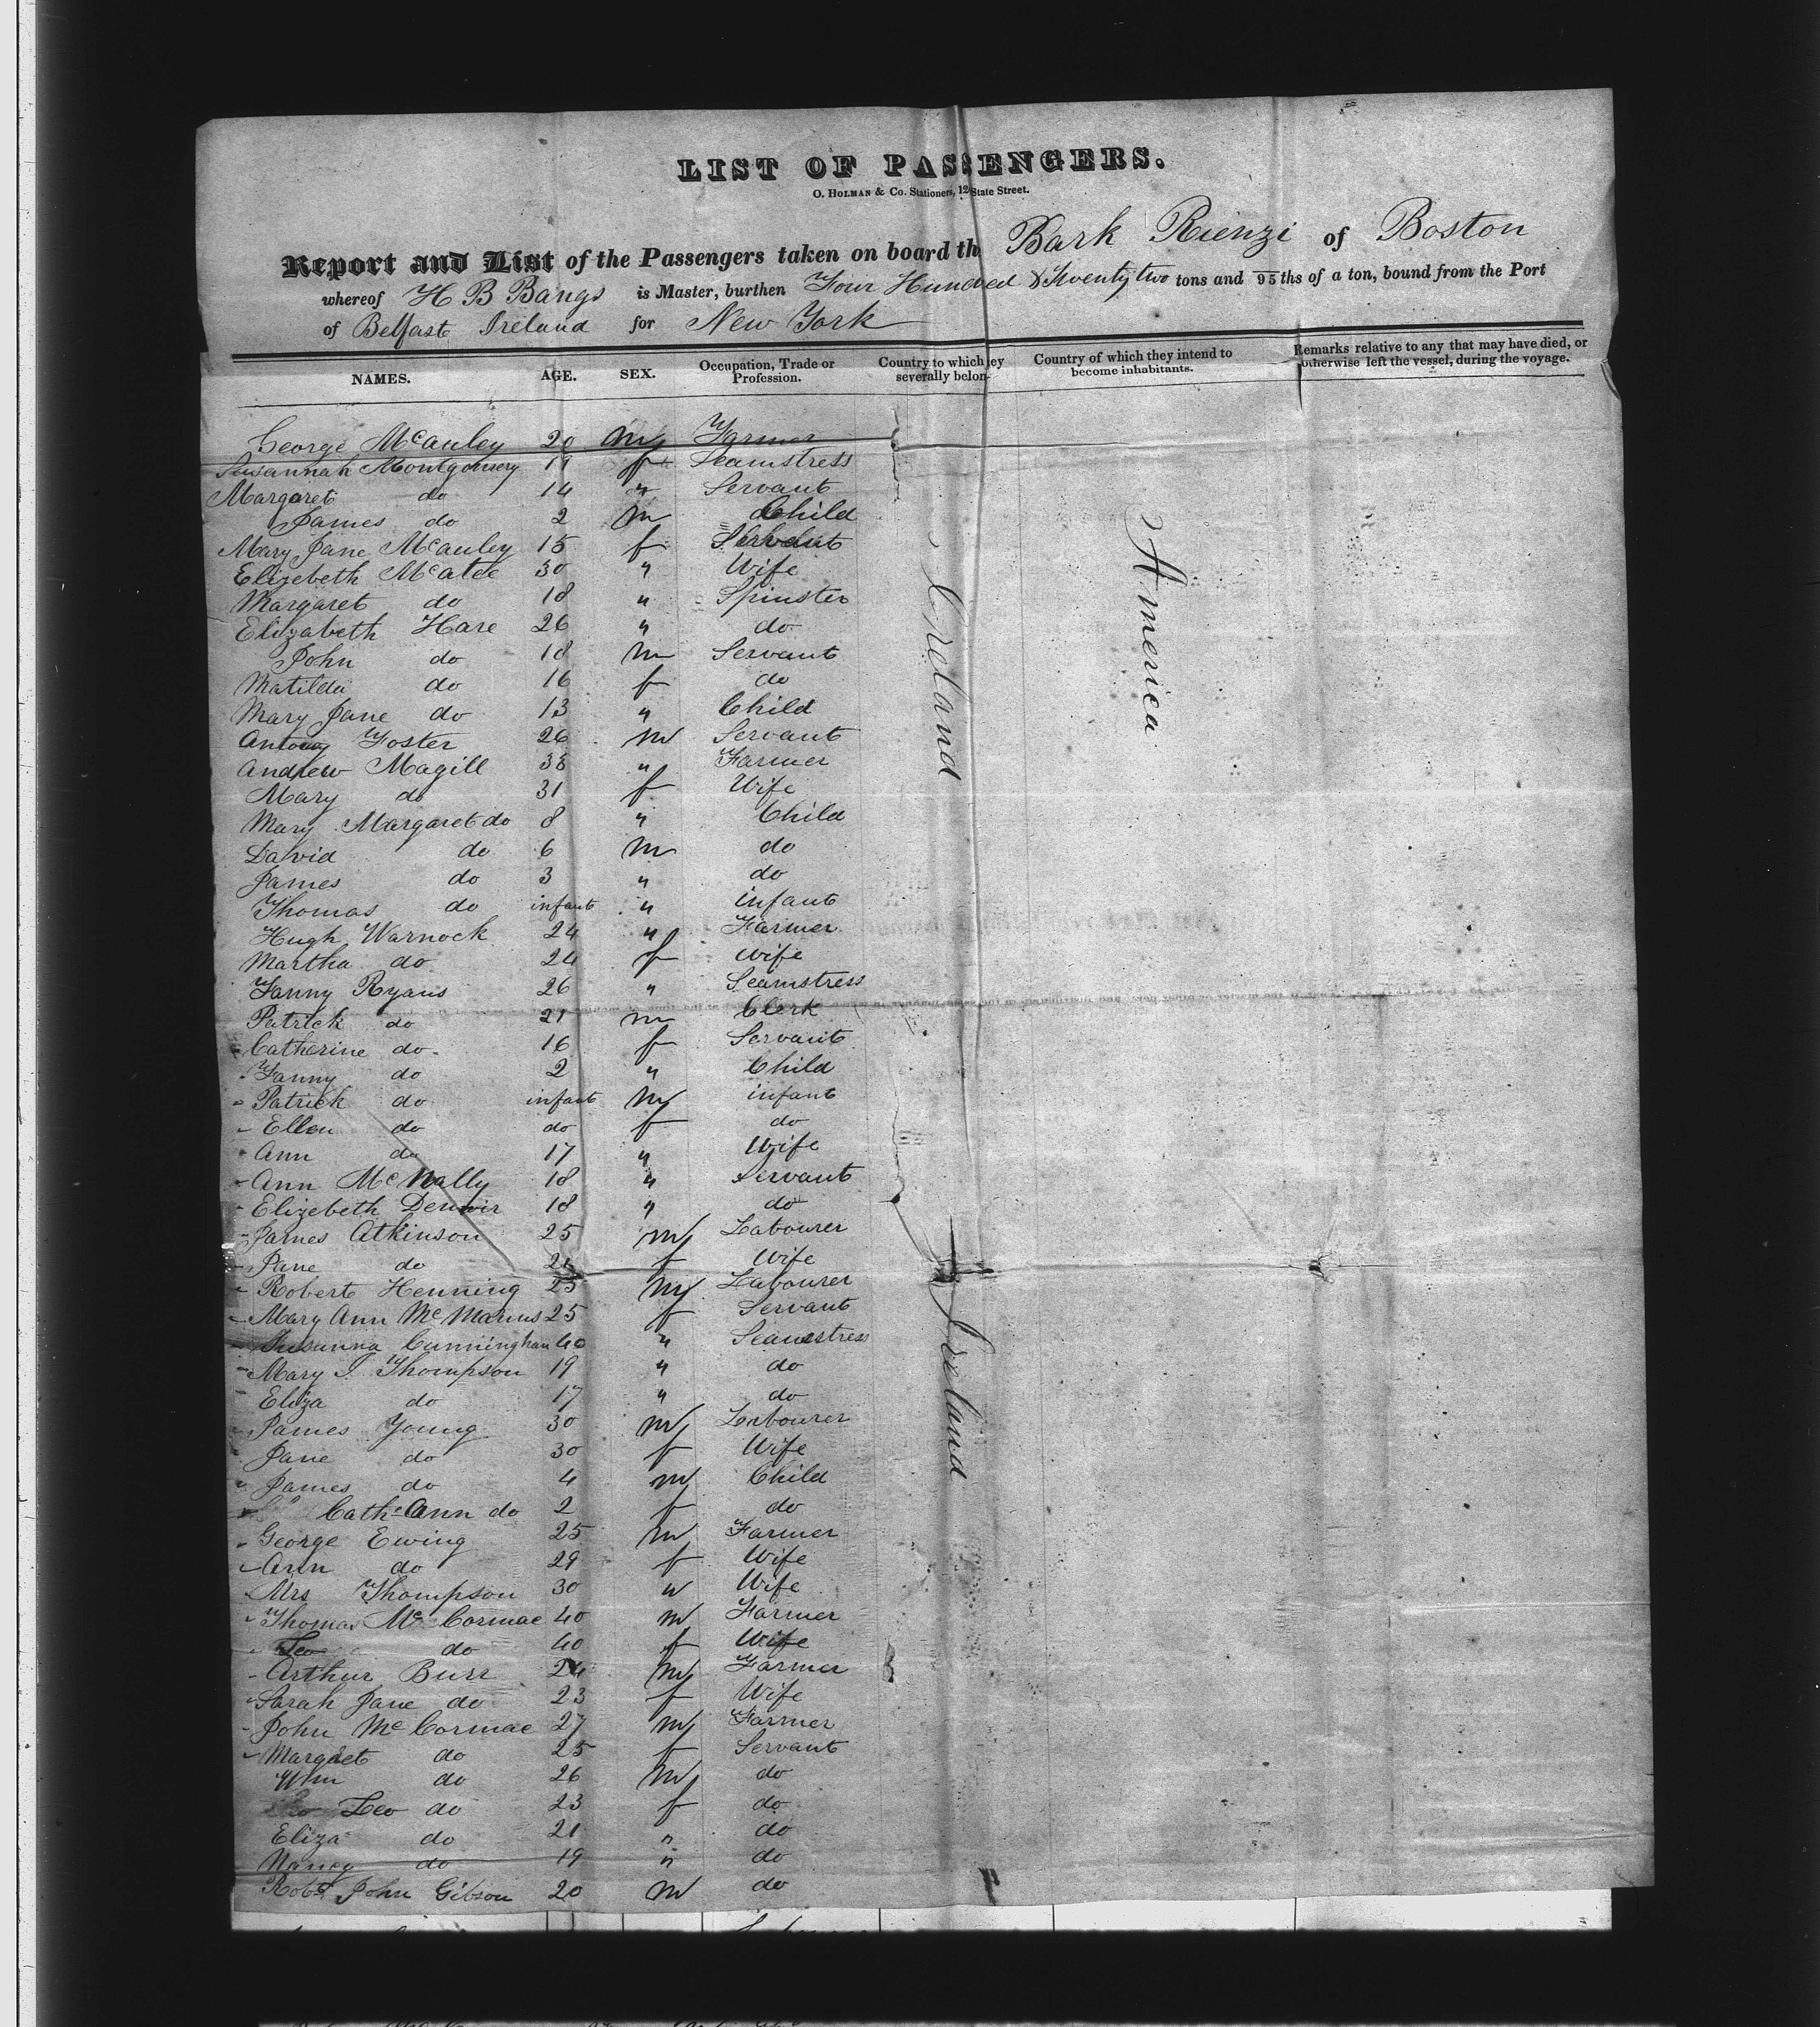 LIST OF PASSENGERS.
O. HOLMAN & Co. Stationers, 12 State Street.
Report and List of the Passengers taken on board th Bark Rienzi of Boston
whereof H B Bangs is Master, burthen Four Hundred & Twenty two tons and 95ths of a ton, bound from the Port
of Belfast Ireland for New York
NAMES. AGE. SEX. Occupation, Trade or Profession. Country to which ey severally belon- Country of which they intend to become inhabitants. Remarks relative to any that may have died, or otherwise left the vessel, during the voyage.
George McAuley 20 m Farmer
Susannah Montgomery 19 f Seamstress
Margaret do 14 " Servant
James do 2 m Child
Mary Jane McAuley 15 f Servant
Elizebeth McAtee 30 " Wife
Margaret do 18 " Spinster
Elizabeth Hare 26 " do
John do 18 m Servant
Matilda do 16 f do
Mary Jane do 13 " Child
Antony Foster 26 m Servant
Andrew Magill 33 " Farmer
Mary do 31 f Wife
Mary Margaret do 8 " Child
David do 6 m do
James do 3 " do
Thomas do infant " infant
Hugh Warnock 24 " Farmer
Martha do 24 f Wife
Fanny Ryans 26 " Seamstress
Patrick do 21 m Clerk
Catherine do 16 f Servant
Fanny do 2 " Child
Patrick do infant m infant
Ellen do do f do
Ann do 17 " Wife
Ann McNally 18 " Servant
Elizebeth Denwir 18 " do
James Atkinson 25 m Labourer
Jane do 21 f Wife
Robert Henning 25 m Labourer
Mary Ann McManus 25 f Servant
Susanna Cunningham 40 " Seamstress
Mary J. Thompson 19 " do
Eliza do 17 " do
James Young 30 m Labourer
Jane do 30 f Wife
James do 4 m Child
Cathe Ann do 2 f do
George Ewing 25 m Farmer
Ann do 29 f Wife
Mrs Thompson 30 " Wife
Thomas McCormac 40 m Farmer
do 40 f Wife
Arthur Burr 24 m Farmer
Sarah Jane do 23 f Wife
John McCormac 27 m Farmer
Margaret do 25 f Servant
Wm do 26 m do
do 23 f do
Eliza do 21 " do
Nancy do 19 " do
Robt John Gibson 20 m do
Ireland
America
Ireland